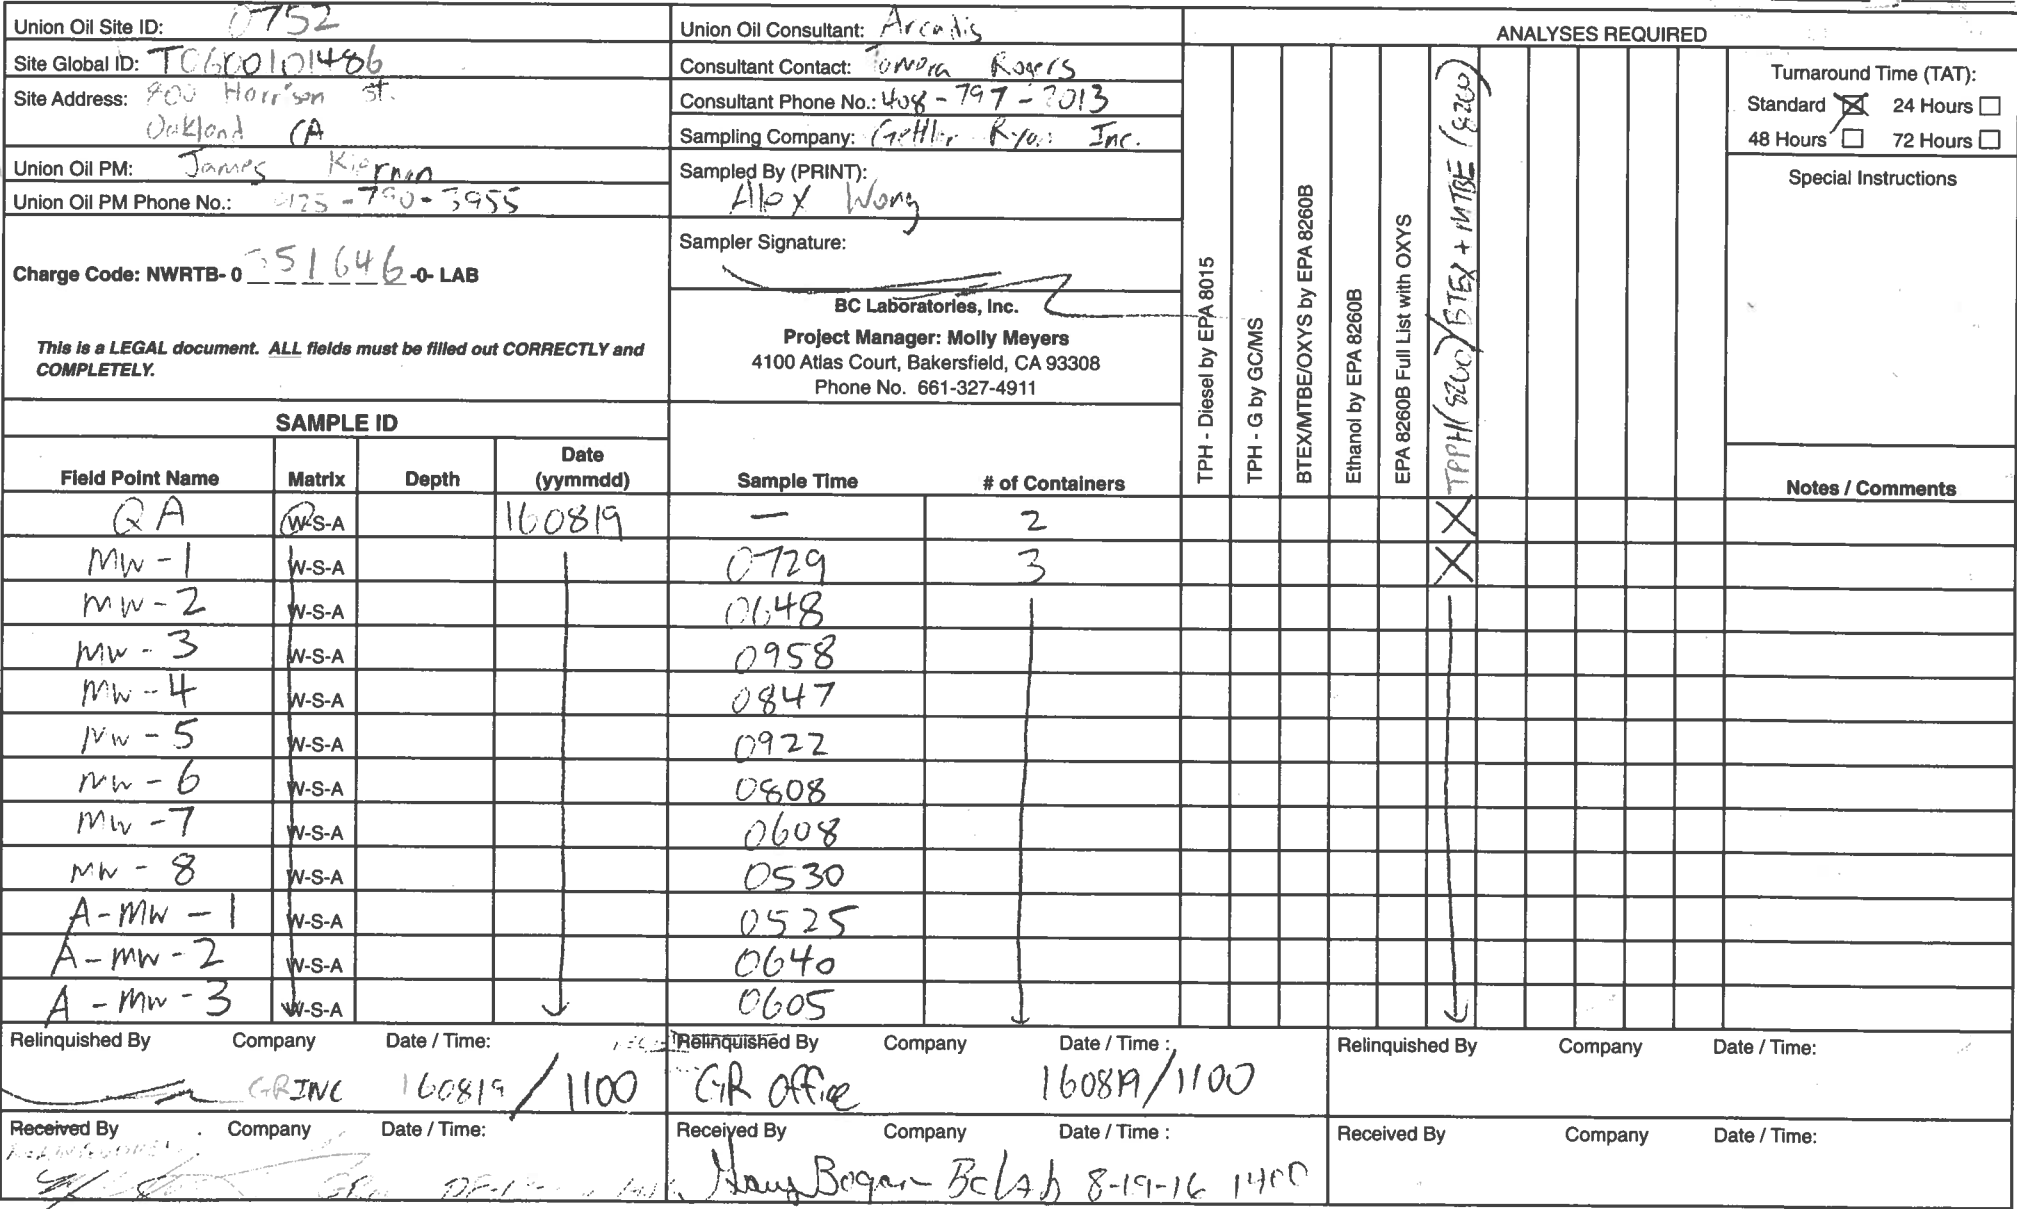 Union Oil Site ID: 0752
Site Global ID: T0600101486
Site Address: 800 Harrison St.
Oakland CA
Union Oil PM: James Kiernan
Union Oil PM Phone No.: 925-790-3955
Charge Code: NWRTB- 0351646-0- LAB
This is a LEGAL document. ALL fields must be filled out CORRECTLY and
COMPLETELY.
Union Oil Consultant: Arcadis
Consultant Contact: Tamora Rogers
Consultant Phone No.: 408-797-2013
Sampling Company: Gettler Ryan Inc.
Sampled By (PRINT):
Alex Wong
Sampler Signature:
BC Laboratories, Inc.
Project Manager: Molly Meyers
4100 Atlas Court, Bakersfield, CA 93308
Phone No. 661-327-4911
ANALYSES REQUIRED
TPH - Diesel by EPA 8015
TPH - G by GC/MS
BTEX/MTBE/OXYS by EPA 8260B
Ethanol by EPA 8260B
EPA 8260B Full List with OXYS
TPPH (8260) / BTEX + MTBE (8260)
Turnaround Time (TAT):
Standard ☒ 24 Hours ☐
48 Hours ☐ 72 Hours ☐
Special Instructions
SAMPLE ID
Field Point Name Matrix Depth Date (yymmdd) Sample Time # of Containers Notes / Comments
QA W-S-A 160819 — 2 X
MW-1 W-S-A 0729 3 X
MW-2 W-S-A 0648
MW-3 W-S-A 0958
MW-4 W-S-A 0847
MW-5 W-S-A 0922
MW-6 W-S-A 0808
MW-7 W-S-A 0608
MW-8 W-S-A 0530
A-MW-1 W-S-A 0525
A-MW-2 W-S-A 0640
A-MW-3 W-S-A 0605
Relinquished By Company Date / Time: Relinquished By Company Date / Time : Relinquished By Company Date / Time:
GRINC 160819/1100 GR Office 160819/1100
Received By Company Date / Time: Received By Company Date / Time : Received By Company Date / Time:
Bogan BC Lab 8-19-16 1400